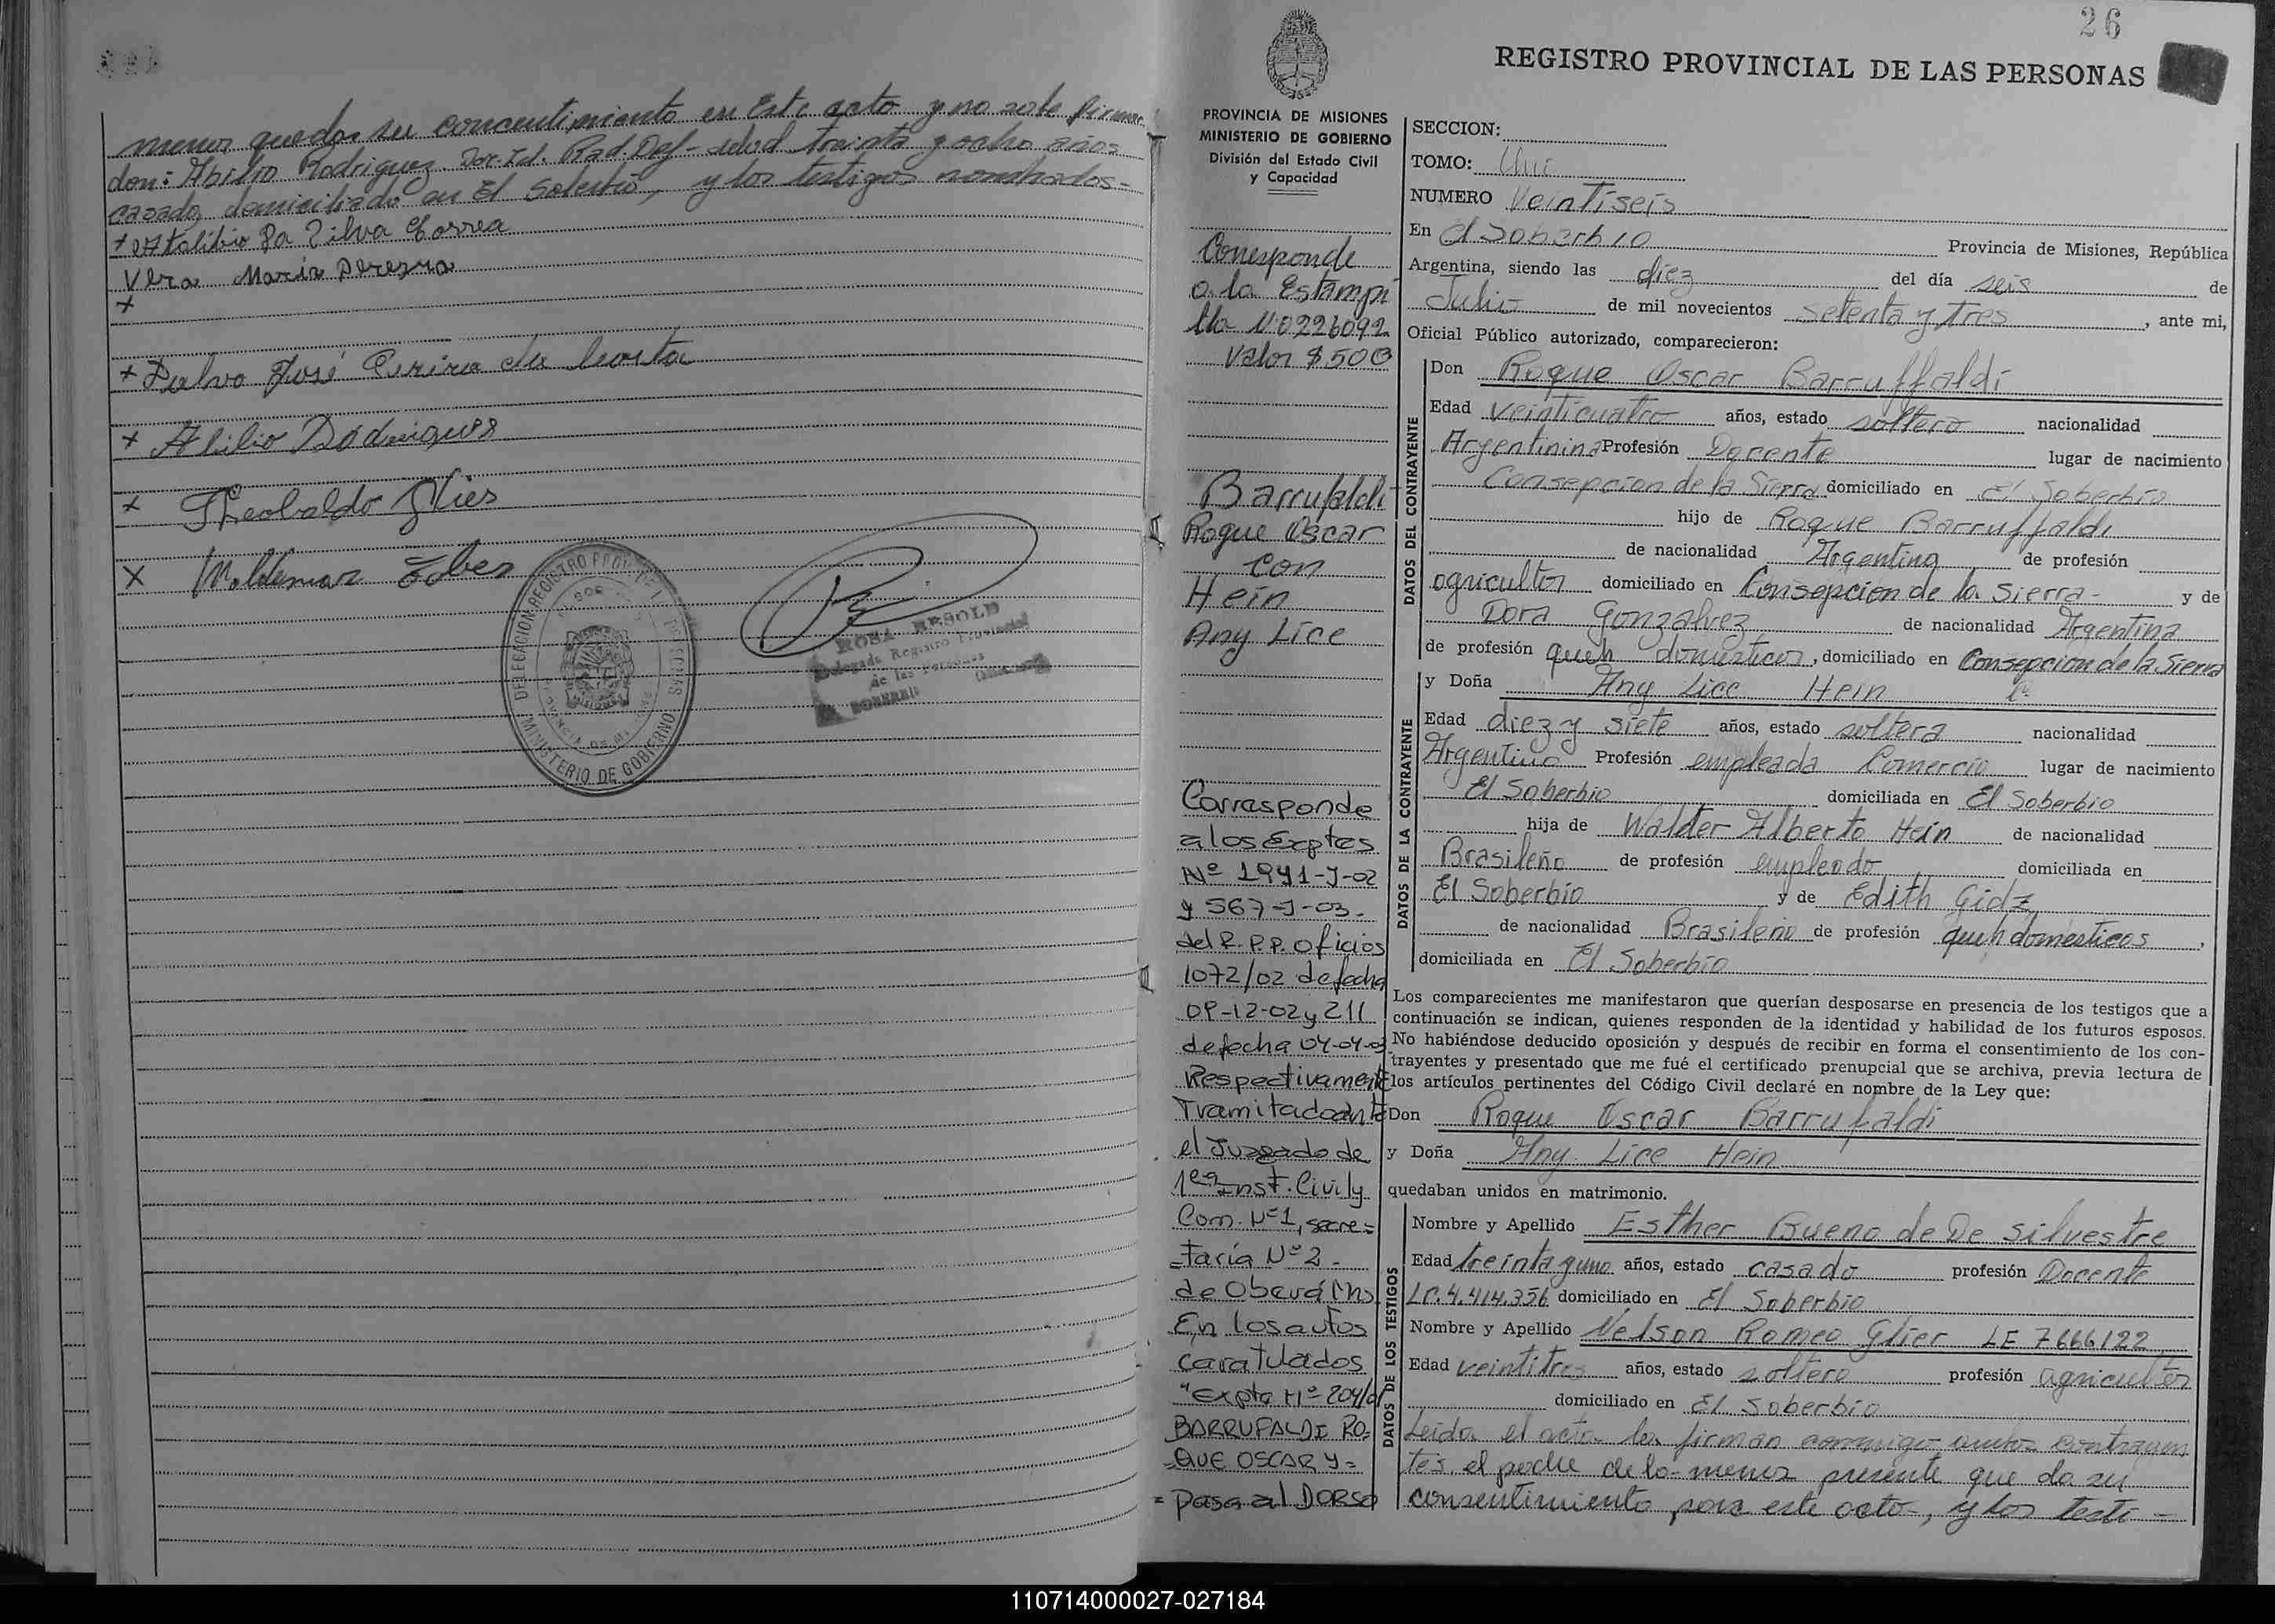 menor quedar su concentimiento en Este acto y no sabe firmar
don: Abilio Rodriguez Doc. Id. Rad. Def- edad treinta y ocho años
casado, domiciliado en El Soberbio, y los testigos nombrados-
Da Silva Correa
Vera Maria Pereyra
+
+ José du Costa
+ Abilio Rodrigues
x Theobaldo Glies
x Woldemar
DELEGACION REGISTRO PROV. DE L PERSONAS
MINISTERIO DE GOBIERNO
ROSA
Delegada Registro Provincial
de las Personas
SOBERBIO
26
REGISTRO PROVINCIAL DE LAS PERSONAS
PROVINCIA DE MISIONES
MINISTERIO DE GOBIERNO
División del Estado Civil
y Capacidad
Corresponde
a la Estampi
lla Nº0226092
valor $500
Barrufaldi
Roque Oscar
con
Hein
Any Lice
Corresponde
a los Exptes
Nº 1941-J-02
y 567-J-03-
del R.P.P. oficios
1072/02 de fecha
09-12-02 y 211
de fecha 04-04-03
Respectivamente
Tramitado ante
el Juzgado de
1era Inst. Civil y
Com. Nº1, secre=
taría Nº2-
de Oberá Mns
En los autos
caratulados
"Expte Nº 204/01
BARRUFALDI RO=
=QUE OSCAR Y=
= Pasa al DORSO
SECCION:
TOMO: Uno
NUMERO Veintiseis
En El Soberbio Provincia de Misiones, República
Argentina, siendo las diez del día seis de
Julio de mil novecientos setenta y tres, ante mi,
Oficial Público autorizado, comparecieron:
DATOS DEL CONTRAYENTE
Don Roque Oscar Barruffaldi
Edad veinticuatro años, estado soltero nacionalidad
Argentinina Profesión Docente lugar de nacimiento
Consepcion de la Sierra domiciliado en El Soberbio
hijo de Roque Barruffaldi
de nacionalidad Argentina de profesión
agricultor domiciliado en Consepcion de la Sierra- y de
Dora Gonzalvez de nacionalidad Argentina
de profesión queh domésticos, domiciliado en Consepcion de la Sierra
DATOS DE LA CONTRAYENTE
y Doña Any Lice Hein
Edad diez y siete años, estado soltera nacionalidad
Argentina Profesión empleada Comercio lugar de nacimiento
El Soberbio domiciliada en El Soberbio
hija de Walter Alberto Hein de nacionalidad
Brasileño de profesión empleado domiciliada en
El Soberbio y de Edith Gidz
de nacionalidad Brasileño de profesión queh domésticos,
domiciliada en El Soberbio
Los comparecientes me manifestaron que querían desposarse en presencia de los testigos que a
continuación se indican, quienes responden de la identidad y habilidad de los futuros esposos.
No habiéndose deducido oposición y después de recibir en forma el consentimiento de los con-
trayentes y presentado que me fué el certificado prenupcial que se archiva, previa lectura de
los artículos pertinentes del Código Civil declaré en nombre de la Ley que:
Don Roque Oscar Barrufaldi
y Doña Any Lice Hein
quedaban unidos en matrimonio.
DATOS DE LOS TESTIGOS
Nombre y Apellido Esther Bueno de De Silvestre
Edad treinta y uno años, estado casado profesión Docente
LC.4.414.356 domiciliado en El Soberbio
Nombre y Apellido Nelson Romeo Glier LE 7666122
Edad veintitres años, estado soltero profesión agricultor
domiciliado en El Soberbio
Leido el acto la firman conmigo ambos contrayen
tes, el padre de la menor presente que da su
consentimiento para este acto, y los testi-
110714000027-027184